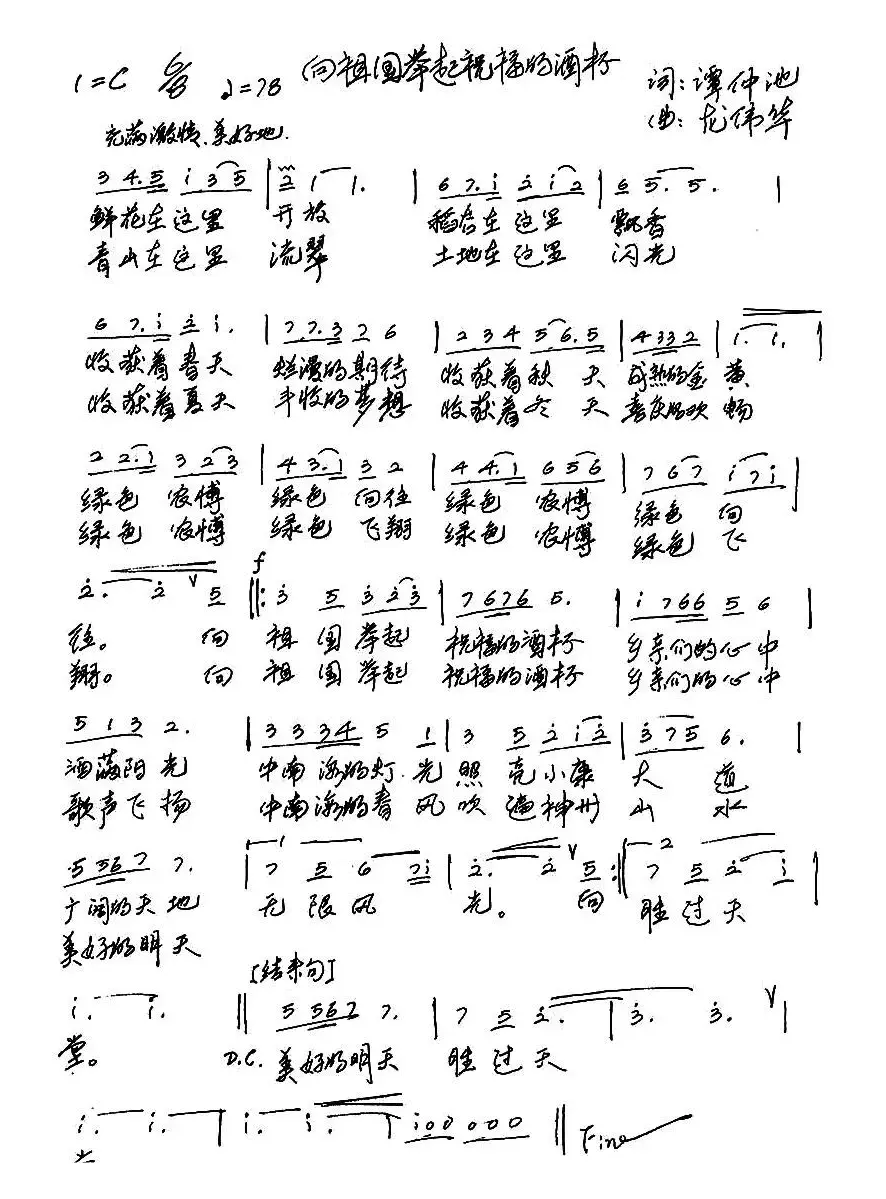 向祖国举起祝福的酒杯
1=C 6/8 ♩=78
词:谭仲池
曲:龙伟华
充满激情、美好地.
3 4.5 i 3 5 | 2 1 1. | 6 7.i 2 i 2 | 6 5. 5. |
鲜花在这里 开放 稻谷在这里 飘香
青山在这里 流翠 土地在这里 闪光
6 7.i 2 i. | 7 7.3 7 6 | 2 3 4 5 6.5 | 4 3 3 2 | i. i. |
收获着春天 烂漫的期待 收获着秋天 成熟的金黄
收获着夏天 丰收的梦想 收获着冬天 喜庆的欢畅
2 2.1 3 2 3 | 4 3.1 3 2 | 4 4.1 6 5 6 | 7 6 7 i 7 i |
绿色 农博 绿色 向往 绿色 农博 绿色 向
绿色 农博 绿色 飞翔 绿色 农博 绿色 飞
f
2. 2 V 5 ‖: 3 5 3 2 3 | 7 6 7 6 5. | i 7 6 6 5 6 |
往。 向 祖国举起 祝福的酒杯 乡亲们的心中
翔。 向 祖国举起 祝福的酒杯 乡亲们的心中
5 1 3 2. | 3 3 3 4 5 1 | 3 5 2 i 2 | 3 7 5 6. |
洒满阳光 中南海的灯光 照亮小康 大道
歌声飞扬 中南海的春风 吹遍神州 山水
5 5 6 7 7. | 1 7 5 6 7 i | 2. 2 V 5 :‖ 2 7 5 2 i |
广阔的天地 无限风 光。 向 胜过天
美好的明天
[结束句]
i. i. ‖ 5 5 6 7 7. | 7 5 2. | 3. 3. V |
堂。 D.C. 美好的明天 胜过天
i. i. | i. i. | i 0 0 0 0 0 ‖ Fine